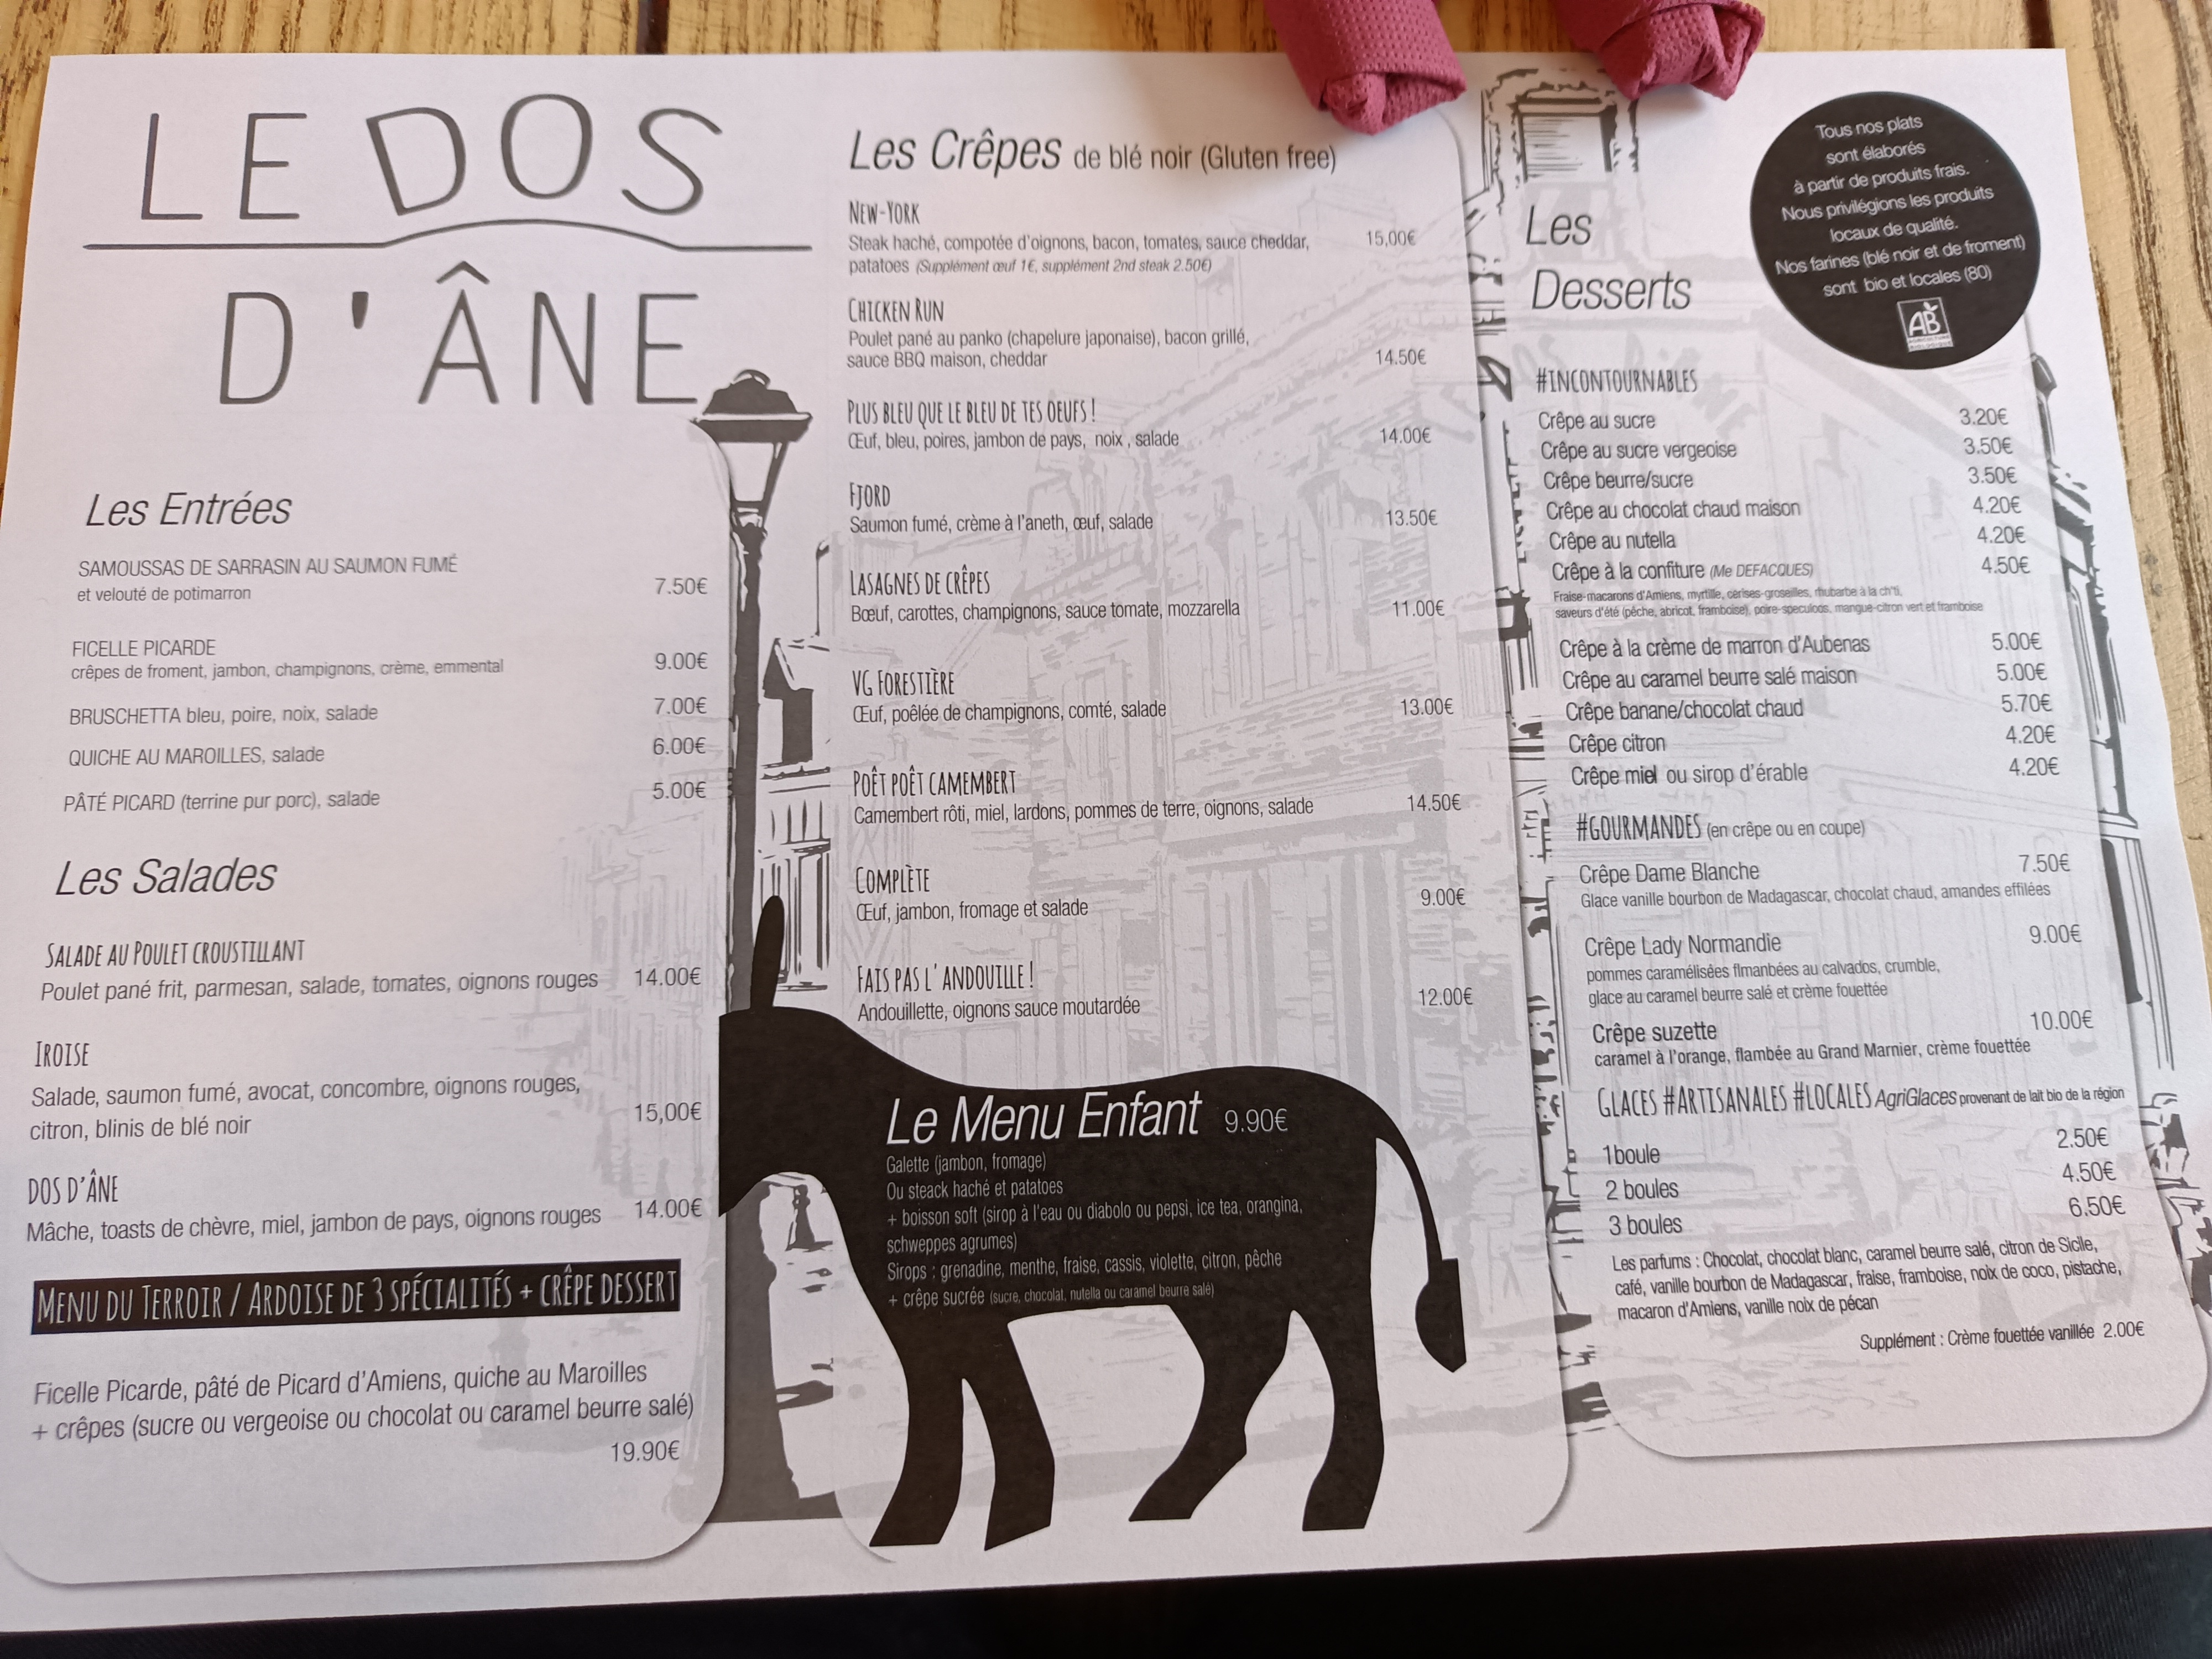 LE DOS
D'ÂNE
Les Entrées
SAMOUSSAS DE SARRASIN AU SAUMON FUMÉ
et velouté de potimarron 7.50€
FICELLE PICARDE
crêpes de froment, jambon, champignons, crème, emmental 9.00€
BRUSCHETTA bleu, poire, noix, salade 7.00€
QUICHE AU MAROILLES, salade 6.00€
PÂTÉ PICARD (terrine pur porc), salade 5.00€
Les Salades
SALADE AU POULET CROUSTILLANT
Poulet pané frit, parmesan, salade, tomates, oignons rouges 14.00€
IROISE
Salade, saumon fumé, avocat, concombre, oignons rouges,
citron, blinis de blé noir 15,00€
DOS D'ÂNE
Mâche, toasts de chèvre, miel, jambon de pays, oignons rouges 14.00€
MENU DU TERROIR / ARDOISE DE 3 SPÉCIALITÉS + CRÊPE DESSERT
Ficelle Picarde, pâté de Picard d'Amiens, quiche au Maroilles
+ crêpes (sucre ou vergeoise ou chocolat ou caramel beurre salé)
19.90€
Les Crêpes de blé noir (Gluten free)
NEW-YORK
Steak haché, compotée d'oignons, bacon, tomates, sauce cheddar, 15,00€
patatoes (Supplément œuf 1€, supplément 2nd steak 2.50€)
CHICKEN RUN
Poulet pané au panko (chapelure japonaise), bacon grillé,
sauce BBQ maison, cheddar 14.50€
PLUS BLEU QUE LE BLEU DE TES OEUFS !
Œuf, bleu, poires, jambon de pays, noix , salade 14.00€
FJORD
Saumon fumé, crème à l'aneth, œuf, salade 13.50€
LASAGNES DE CRÊPES
Bœuf, carottes, champignons, sauce tomate, mozzarella 11.00€
VG FORESTIÈRE
Œuf, poêlée de champignons, comté, salade 13.00€
POÊT POÊT CAMEMBERT
Camembert rôti, miel, lardons, pommes de terre, oignons, salade 14.50€
COMPLÈTE
Œuf, jambon, fromage et salade 9.00€
FAIS PAS L'ANDOUILLE !
Andouillette, oignons sauce moutardée 12.00€
Le Menu Enfant 9.90€
Galette (jambon, fromage)
Ou steack haché et patatoes
+ boisson soft (sirop à l'eau ou diabolo ou pepsi, ice tea, orangina,
schweppes agrumes)
Sirops : grenadine, menthe, fraise, cassis, violette, citron, pêche
+ crêpe sucrée (sucre, chocolat, nutella ou caramel beurre salé)
Les
Desserts
Tous nos plats
sont élaborés
à partir de produits frais.
Nous privilégions les produits
locaux de qualité.
Nos farines (blé noir et de froment)
sont bio et locales (80)
AB
#INCONTOURNABLES
Crêpe au sucre 3.20€
Crêpe au sucre vergeoise 3.50€
Crêpe beurre/sucre 3.50€
Crêpe au chocolat chaud maison 4.20€
Crêpe au nutella 4.20€
Crêpe à la confiture (Me DEFACQUES) 4.50€
Fraise-macarons d'Amiens, myrtille, cerises-groseilles, rhubarbe à la ch'ti,
saveurs d'été (pêche, abricot, framboise), poire-speculoos, mangue-citron vert et framboise
Crêpe à la crème de marron d'Aubenas 5.00€
Crêpe au caramel beurre salé maison 5.00€
Crêpe banane/chocolat chaud 5.70€
Crêpe citron 4.20€
Crêpe miel ou sirop d'érable 4.20€
#GOURMANDES (en crêpe ou en coupe)
Crêpe Dame Blanche 7.50€
Glace vanille bourbon de Madagascar, chocolat chaud, amandes effilées
Crêpe Lady Normandie 9.00€
pommes caramélisées flmanbées au calvados, crumble,
glace au caramel beurre salé et crème fouettée
Crêpe suzette 10.00€
caramel à l'orange, flambée au Grand Marnier, crème fouettée
GLACES #ARTISANALES #LOCALES AgriGlaces provenant de lait bio de la région
1boule 2.50€
2 boules 4.50€
3 boules 6.50€
Les parfums : Chocolat, chocolat blanc, caramel beurre salé, citron de Sicile,
café, vanille bourbon de Madagascar, fraise, framboise, noix de coco, pistache,
macaron d'Amiens, vanille noix de pécan
Supplément : Crème fouettée vanillée 2.00€